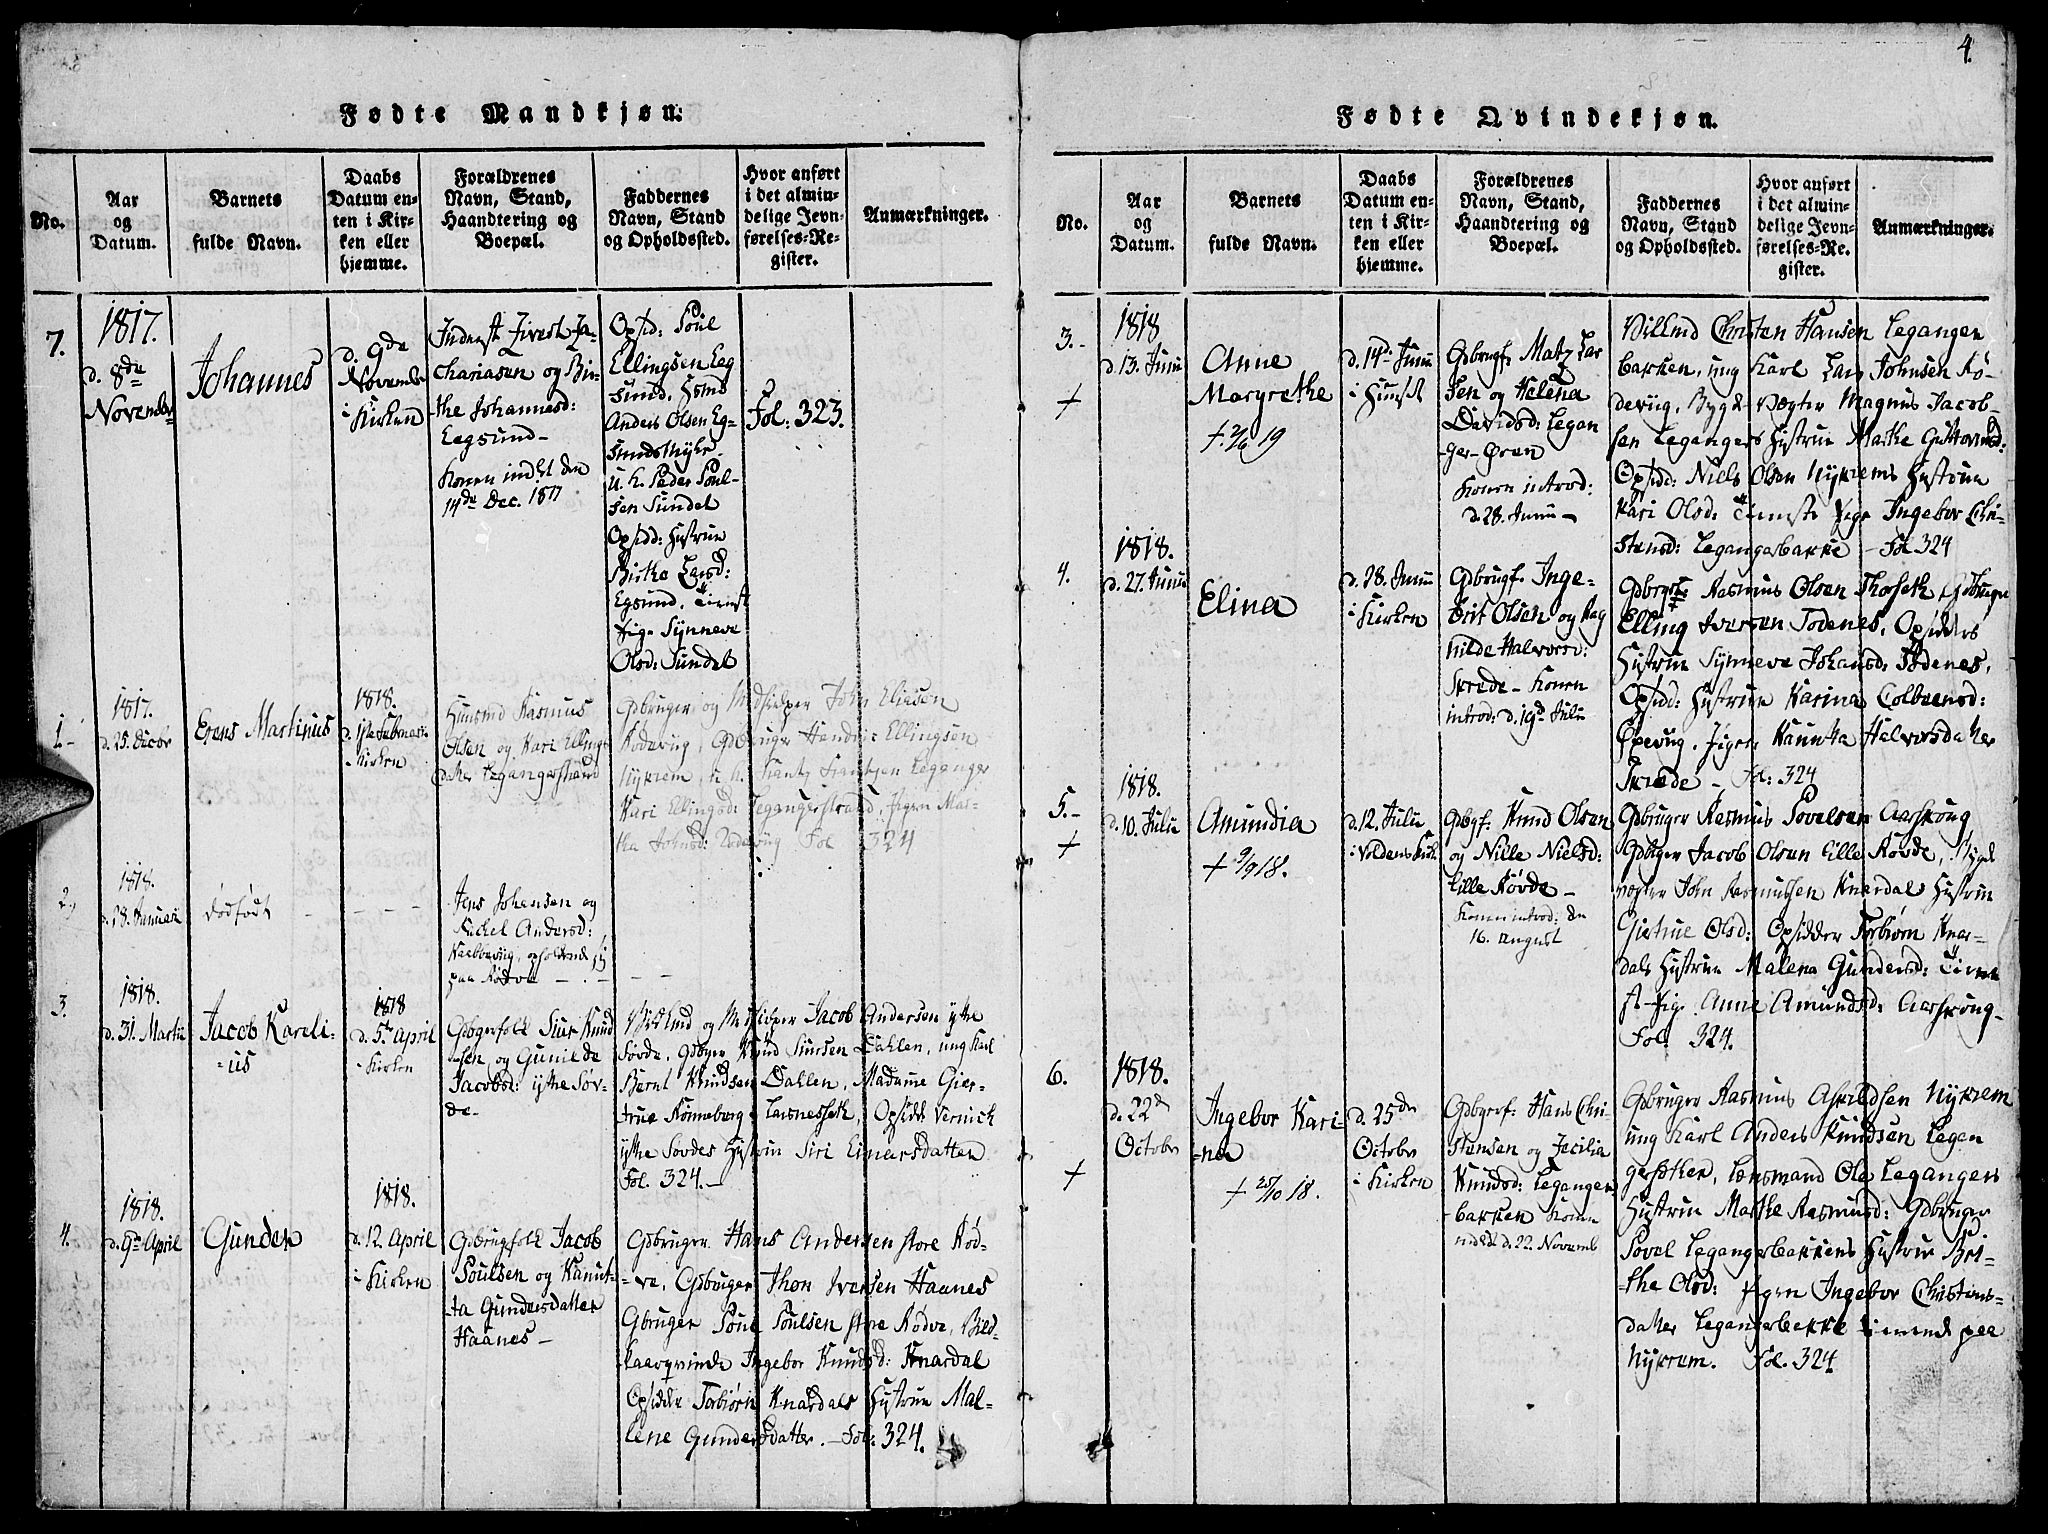 4.
Fødte Mandkjøn:
No.
Aar
og
Datum.
Barnets
fulde Navn.
Daabs
Datum en-
ten i Kir-
ken eller
hjemme.
Forældrenes
Navn, Stand,
Haandtering og
Boepæl.
Faddernes
Navn, Stand
og Opholdssted.
Hvor anført
i det almin-
delige Jevn-
førelses-Re-
gister.
Anmærkninger.
7.
1817.
d. 8de
November
Johannes
d. 9de
November
i Kirken
Inderst Za-
chariasen og Bir-
the Johannesd:
Eegsund-
Konen indlt den
14de Dec. 1817
Opsid: Poul
Ellingsen Eeg
sund,
Anders Olsen Eg-
sundsmyhr
u. k. Peder Poul-
sen Sundet
Opsidd: Hystrue
Birthe Larsd:
Egsund, Tienst
Pige Synneve
Olsd: Sundet
Fol: 323.
1.-
1817.
d. 25. Decbr
Erens Martinus
1818.
d. 1ste Februarii
i Kirken
Huusmd Rasmus
Olsen og Kari Ellings
datter Legangerstrand
Gdbruger og Medhielper John Eliesen
Rødevug, Gdbruger Hendric Ellingsen
Nykrem, u. k. Leganger
Kari Ellingsd: Legangerstrand, Pigen Mar-
tha Johnsd: Rødevug Fol 324
2.
1818.
d. 28. Januarii
dødfødt
Jens Johansen og
Rachel Andersd:
opholdende sig
paa Rødve
3.
1818.
d. 31. Martii
Jacob Kareli-
=us
1818
d. 5te April
i Kirken
Gdbrgerfolk Siur Knud
sen og Gunilde
Jacobsd: ytre Søv-
de-
og Medhielper Jacob Andersen ytre
Søvde, Gdbrger Knud Siursen Dahlen, ung Karl
Bernt Knudsen Dallen, Madame Gier-
true Rønneberg Larsnesseth, Opsidd: Vernich
ytre Søvdes Hystru Siri Einarsdatter
Fol. 324.-
4.
1818.
d. 9de April
Gunder
1818.
d. 12. April
i Kirken
Gdbrugfolk Jacob
Poulsen og Kanut-
ta Gundersdatter
Haanes-
Gdbruger Hans Andersen store Rød-
ve, Gdbruger Thon Iversen Haanes
Gbruger Poul Poulsen store Rødve, Bild-
kaarqvinde Ingebor Knudsd: Knardal
Opsidder Torbiørn Knardals Hystrue Mal-
lene Gundersdatter. - Fol: 324.
Fødte Qvindekjøn.
No.
Aar
og
Datum.
Barnets
fulde Navn.
Daabs
Datum en-
ten i Kir-
ken eller
hjemme.
Forældrenes
Navn, Stand,
Haandtering og
Boepæl.
Faddernes
Navn, Stand
og Opholdssted.
Hvor anført
i det almin-
delige Jevn-
førelses-Re-
gister.
Anmærkninger.
3.-
+
1818
d. 13. Junii
Anne
Margrethe
+ 2/6 19
d. 14de Junii
i Huuset
Gdbrugf. Matz Lar
sen og Helena
Davidsd: Legan
ger-Øren
Konen introd:
d. 28. Junii -
Christen Hansen Leganger
bakken, ung Karl Lars Johnsen Rø-
devug, Bygdevægter Magnus Jacob-
sen Legangers Hystrue Marthe Guttormsd:
Opsidd: Niels Olsen Nykrems Hystrue
Kari Olsd: Tienste Pige Ingebor Chri-
stensd: Legangerbakke - Fol 324
4.
1818.
d. 27. Junii
Elina
d. 28. Junii
i Kirken
Gdbrugf. Inge-
brit Olsen og Rag
nilde Halvorsd:
Skrede - Konen
introd: d. 19de Julii
Gdbrgr: Rasmus Olsen Thorseth, Gdbruger
Elling Iversen Todenes, Opsidders
Hystrue Synneve Johansd: Todenes,
Opsidd: Hystrue Karina Colbeensd:
Øpevug, Pigen Kanutta Halvorsdatter
Skrede - Fol: 324
5.-
+
1818.
d. 10. Julii
Amundia
+ 9/9 18.
d. 12. Julii
i Voldens Kirk
Gdbgf. Knud Olsen
og Nille Nielsd:
Lille Røvde -
Konen introd: den
16. august
Gdbruger Rasmus Povelsen Aarskoug
Gdbrger Jacob Olsen Lille Røvde, Bygd
vægter John Rasmussen Knardals Hystrue
Giertrue Olsd: Opsidder Torbiørn Knar-
dals Hystrue Malena Gundersd: Tiene
ste Pige Anne Amundsd: Aarskoug-
Fol. 324.
6.
+
1818.
d. 22de
October
Ingebor Kari-
=na
+ 25/10 18.
d. 25de
October
i Kirken
Gdbgerf. Hans Chri-
stensen og Cecilia
Knudsd: Leganger
bakken Konen
indledt d. 22. Novemb
Gdbruger Rasmus Askildsen Nykrem
ung Karl Anders Knudsen Legan
gersøther, Lensmand Ole Legangers
Hystrue Marthe Rasmusd: Gdbruger
Povel Legangerbakkens Hystrue Bri-
the Olsd: Pigen Ingebor Christens-
datter Legangerbakke tienende paa
Nykrem. Fol. 324